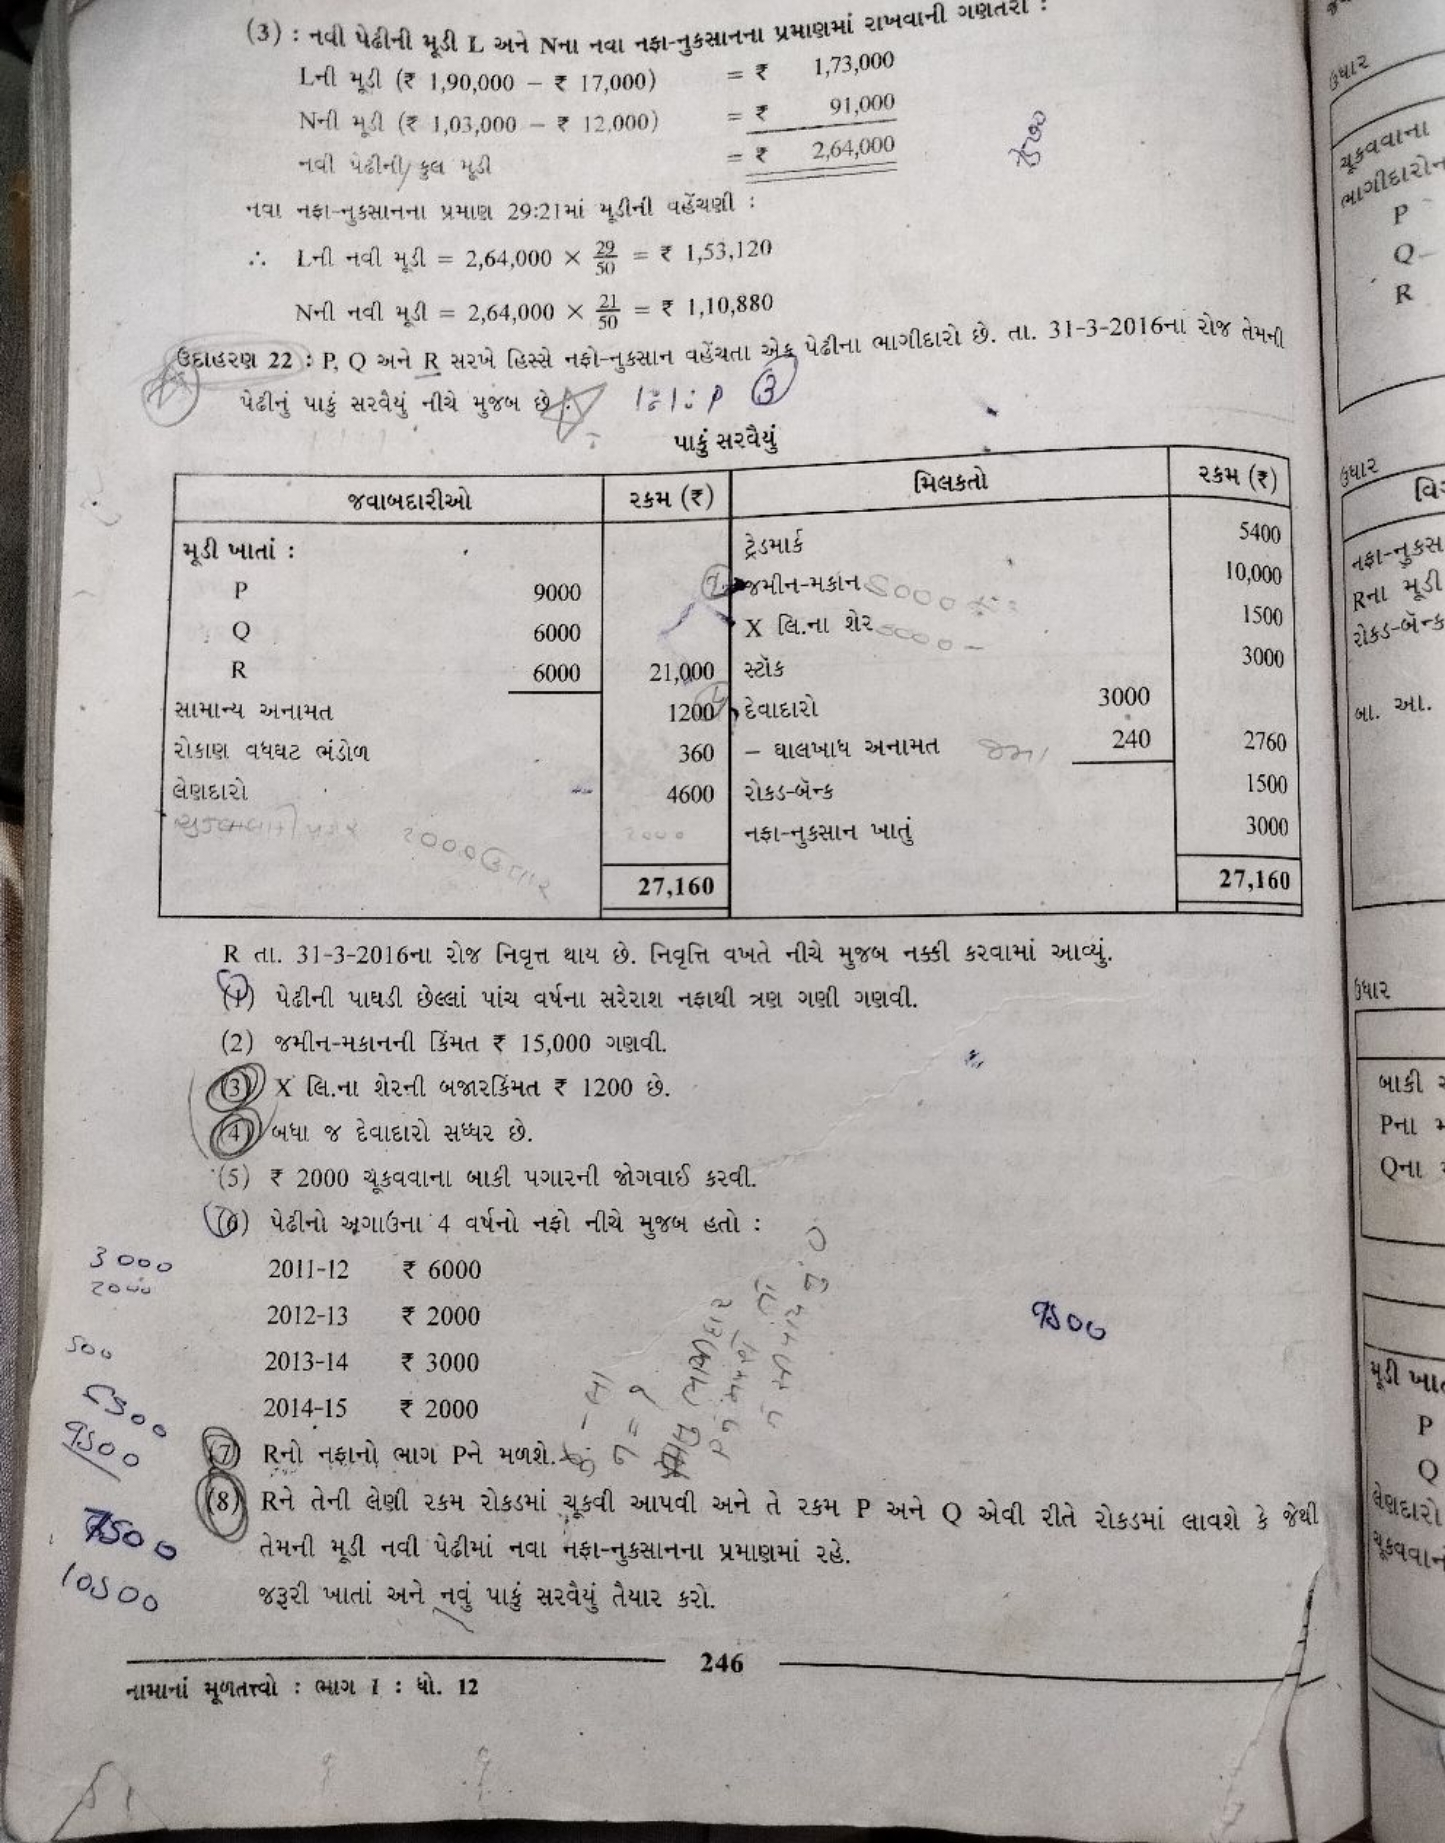 (3) : નવી પેઢીની મૂડી L અને Nના નવા નફા-નુકસાનના પ્રમાણમાં રાખવાની ગણતરી :
Lની મૂડી (₹ 1,90,000 – ₹ 17,000) = ₹ 1,73,000
Nની મૂડી (₹ 1,03,000 – ₹ 12,000) = ₹ 91,000
નવી પેઢીની કુલ મૂડી = ₹ 2,64,000
નવા નફા-નુકસાનના પ્રમાણ 29:21માં મૂડીની વહેંચણી :
∴ Lની નવી મૂડી = 2,64,000 × 29/50 = ₹ 1,53,120
Nની નવી મૂડી = 2,64,000 × 21/50 = ₹ 1,10,880
ઉદાહરણ 22 : P, Q અને R સરખે હિસ્સે નફો-નુકસાન વહેંચતા એક પેઢીના ભાગીદારો છે. તા. 31-3-2016ના રોજ તેમની
પેઢીનું પાકું સરવૈયું નીચે મુજબ છે : 1:1:P 3
પાકું સરવૈયું
જવાબદારીઓ રકમ (₹) મિલકતો રકમ (₹)
મૂડી ખાતાં : ટ્રેડમાર્ક 5400
P 9000 જમીન-મકાન 10,000
Q 6000 X લિ.ના શેર 1500
R 6000 21,000 સ્ટૉક 3000
સામાન્ય અનામત 1200 દેવાદારો 3000
રોકાણ વધઘટ ભંડોળ 360 – ઘાલખાધ અનામત 240 2760
લેણદારો 4600 રોકડ-બૅન્ક 1500
2000 2000 નફા-નુકસાન ખાતું 3000
27,160 27,160
R તા. 31-3-2016ના રોજ નિવૃત્ત થાય છે. નિવૃત્તિ વખતે નીચે મુજબ નક્કી કરવામાં આવ્યું.
(1) પેઢીની પાઘડી છેલ્લાં પાંચ વર્ષના સરેરાશ નફાથી ત્રણ ગણી ગણવી.
(2) જમીન-મકાનની કિંમત ₹ 15,000 ગણવી.
(3) X લિ.ના શેરની બજારકિંમત ₹ 1200 છે.
(4) બધા જ દેવાદારો સધ્ધર છે.
(5) ₹ 2000 ચૂકવવાના બાકી પગારની જોગવાઈ કરવી.
(6) પેઢીનો અગાઉના 4 વર્ષનો નફો નીચે મુજબ હતો :
3000
2000
2011-12 ₹ 6000
2012-13 ₹ 2000
500
2013-14 ₹ 3000
2014-15 ₹ 2000
(7) Rનો નફાનો ભાગ Pને મળશે.
(8) Rને તેની લેણી રકમ રોકડમાં ચૂકવી આપવી અને તે રકમ P અને Q એવી રીતે રોકડમાં લાવશે કે જેથી
તેમની મૂડી નવી પેઢીમાં નવા નફા-નુકસાનના પ્રમાણમાં રહે.
જરૂરી ખાતાં અને નવું પાકું સરવૈયું તૈયાર કરો.
246
નામાનાં મૂળતત્ત્વો : ભાગ I : ધો. 12
ઉધાર
ચૂકવવાના
P
Q
R
ઉધાર
Rના મૂડી
બા. આ.
ઉધાર
બાકી
Pના
Qના
P
Q
લેણદારો